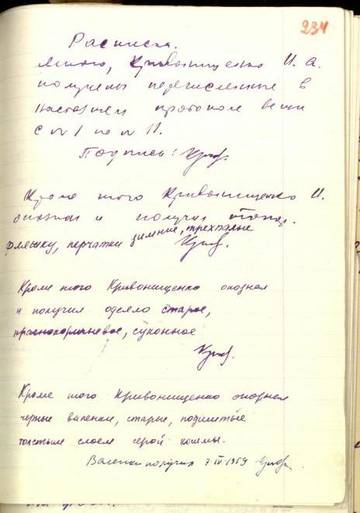 234
Расписка.
Мною, Кривонищенко И. А.
получены перечисленные в
настоящем протоколе вещи
с № 1 по № 11.
Подпись:
Кроме того Кривонищенко И.
опознал и получил
зимние, трехпалые
фляжку, перчатки
Кроме того Кривонищенко опознал
и получил одеяло старое,
суконное
Кроме того Кривонищенко опознал
черные валенки, старые, подшитые
толстым слоем серой кошмы.
Валенки получил 7 IV 1959